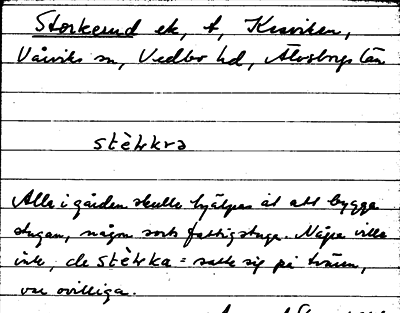 Storkerud ek, t, Krokviken,
Vårviks sn, Vedbo hd, Älvsborgs län
stèrkrɘ
Alla i gården skulle hjälpas åt att bygga
stugan, någon sorts fattigstuga. Några ville
inte, de stèrka = satte sig på tvären,
var ovilliga.